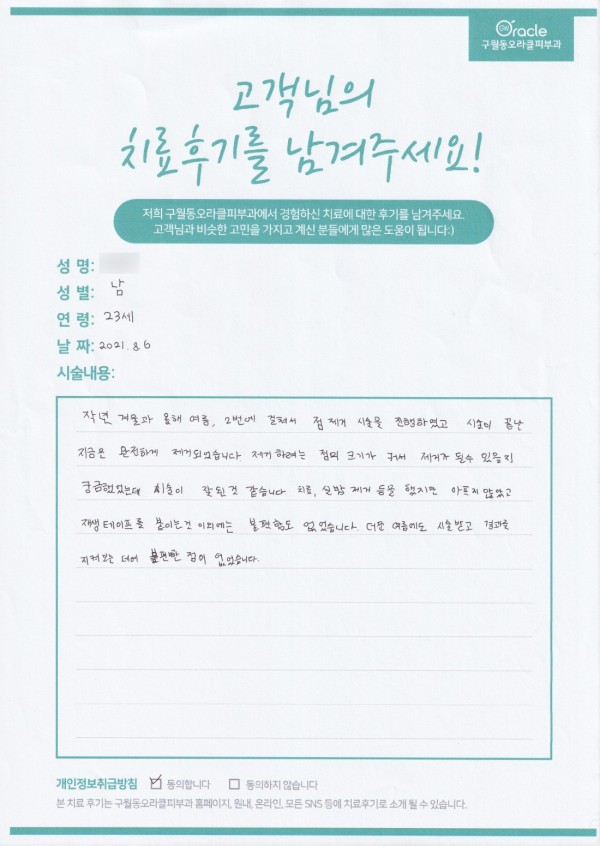 Oracle
구월동오라클피부과
고객님의
치료후기를 남겨주세요!
저희 구월동오라클피부과에서 경험하신 치료에 대한 후기를 남겨주세요.
고객님과 비슷한 고민을 가지고 계신 분들에게 많은 도움이 됩니다:)
성 명:
성 별: 남
연 령: 23세
날 짜: 2021. 8.6
시술내용:
작년 겨울과 올해 여름, 2번에 걸쳐서 점 제거 시술을 진행하였고 시술이 끝난
지금은 완전하게 제거되었습니다 제거하려는 점의 크기가 커서 제거가 될수 있을지
궁금했었는데 시술이 잘된것 같습니다 치료, 실밥 제거 등을 했지만 아프지 않았고
재생테이프를 붙이는것 이외에는 불편함도 없었습니다. 더운 여름에도 시술받고 결과를
지켜보는 데에 불편한 점이 없었습니다.
개인정보취급방침 ☑ 동의합니다 ☐ 동의하지 않습니다
본 치료 후기는 구월동오라클피부과 홈페이지, 원내, 온라인, 모든 SNS 등에 치료후기로 소개 될 수 있습니다.